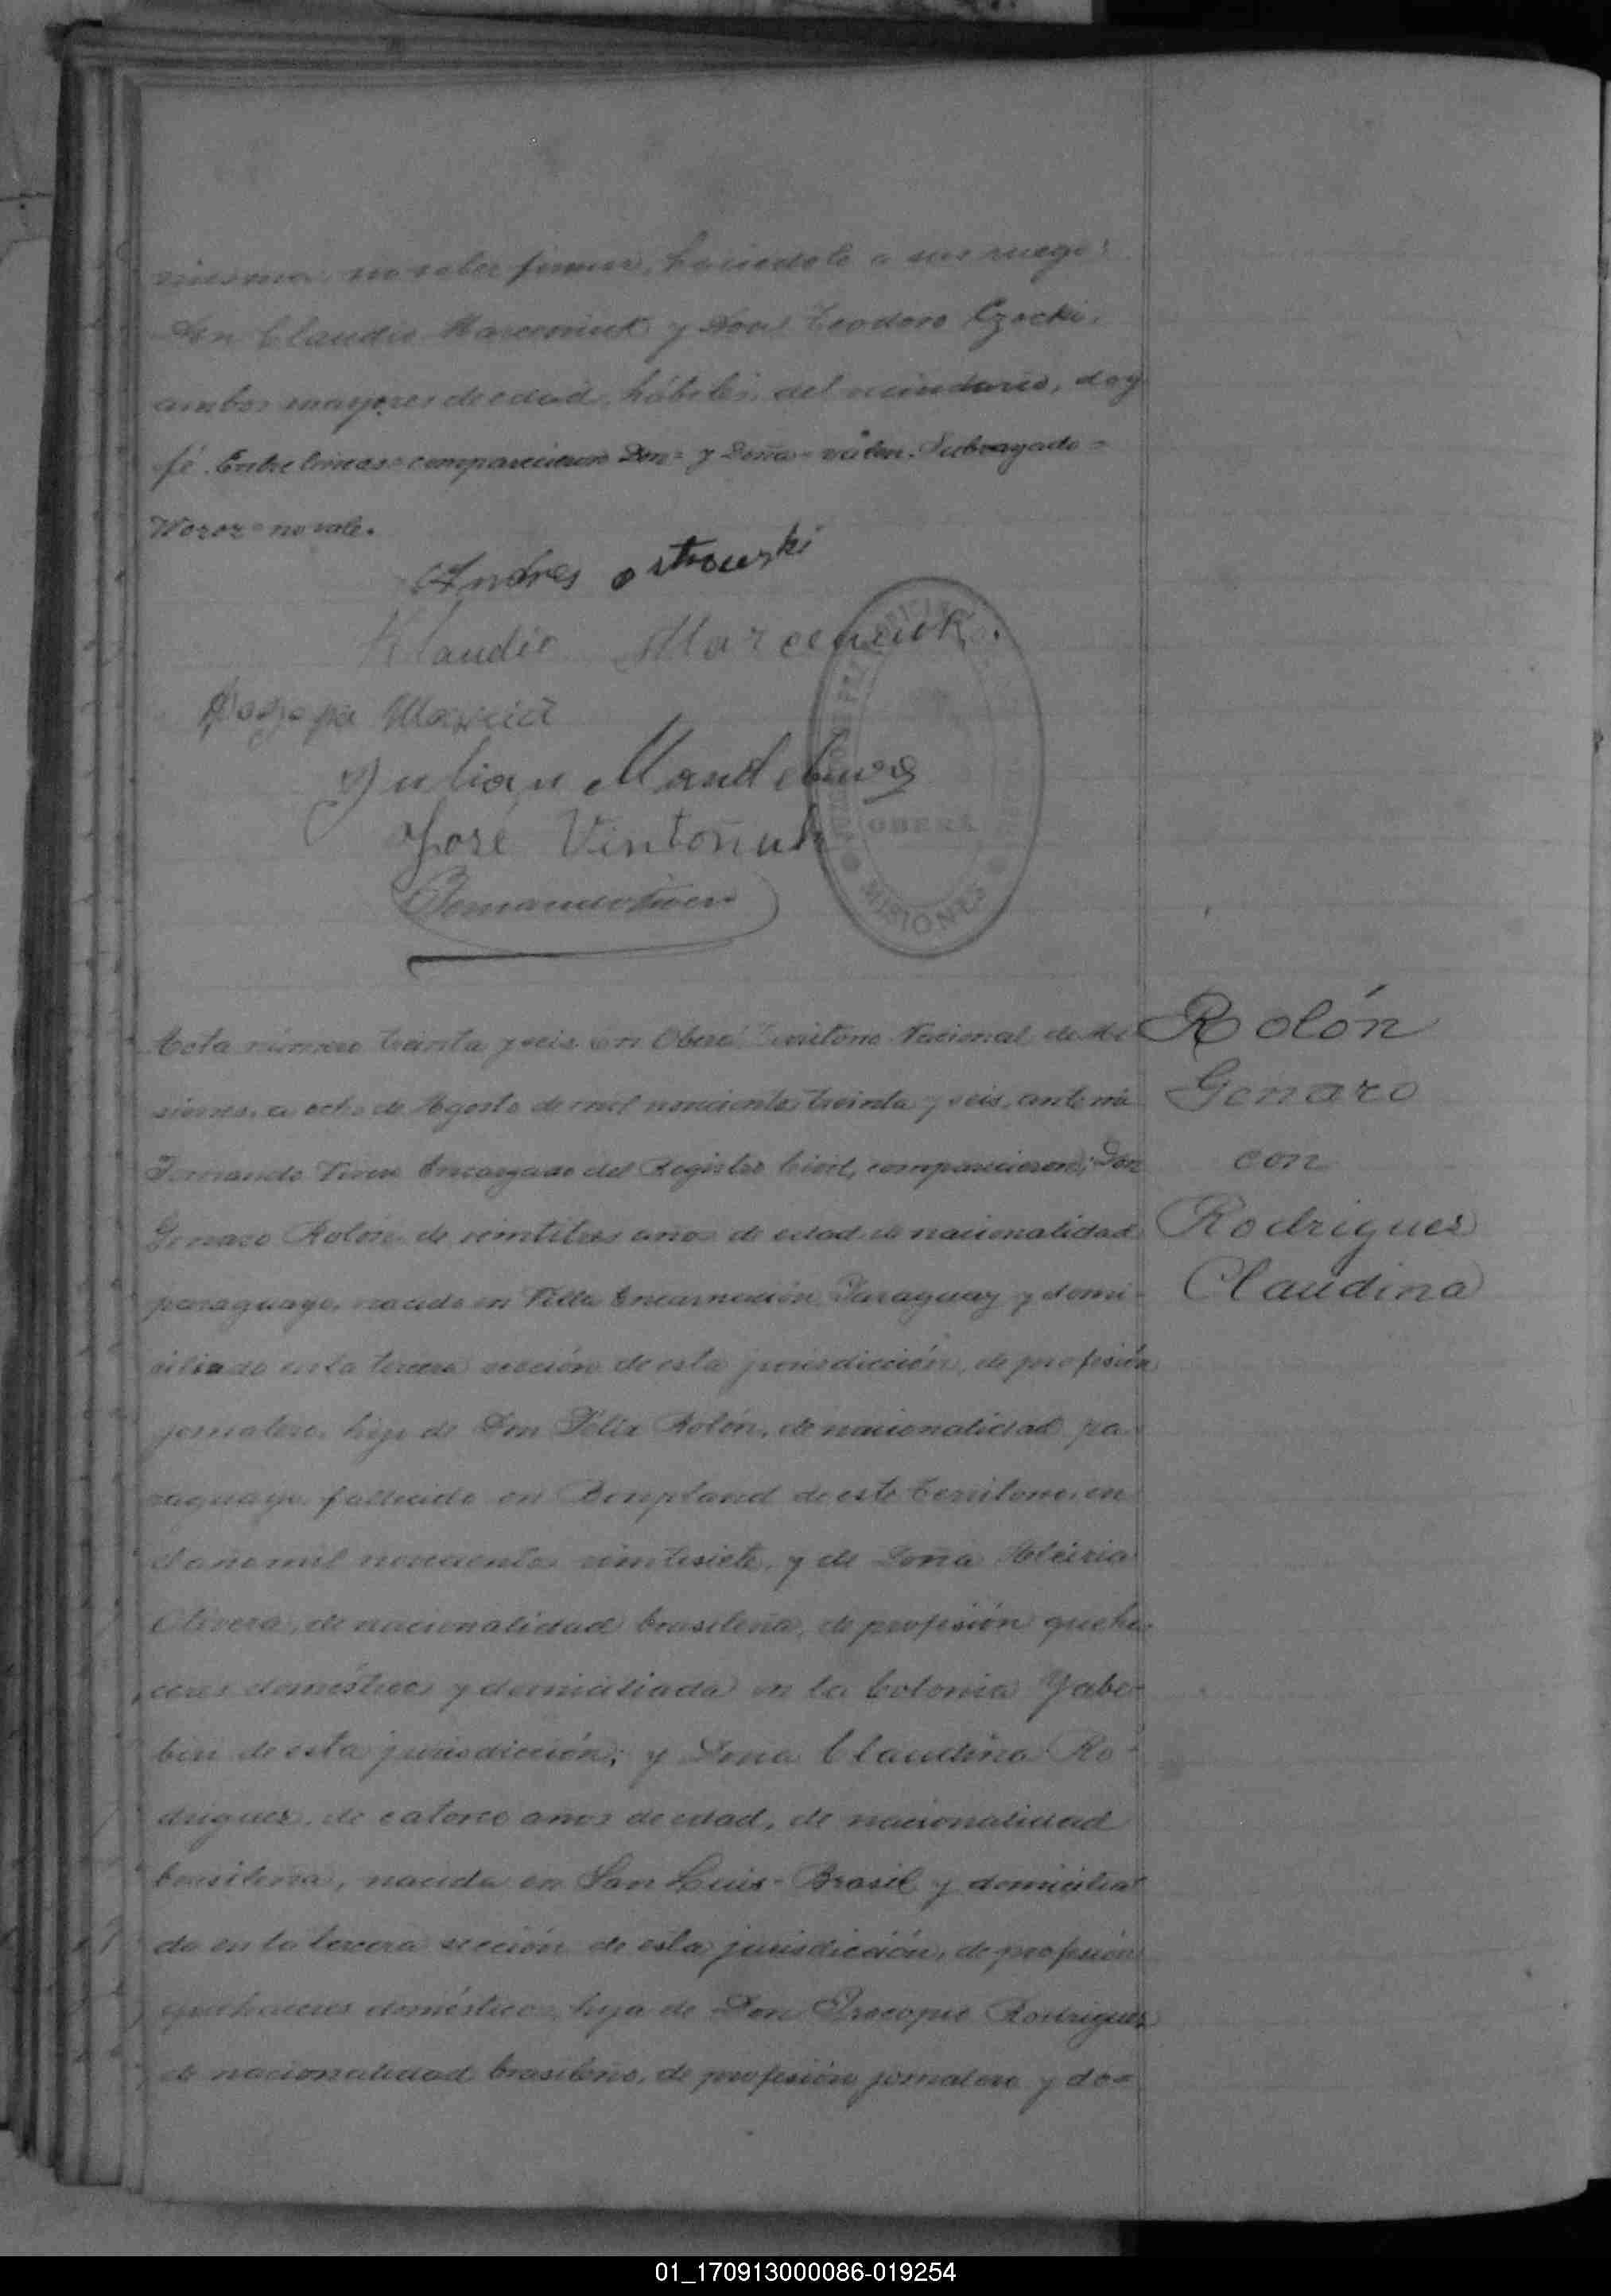 misma no saber firmar, haciendolo a sus ruego:
Don Claudio Marceniuk y Don Teodoro Czocki,
ambos mayores de edad, hábiles, del vecindario, doy
fé. Entre lineas = comparecieron Don = y Doña = valen. Subrayado =
Woroz = no vale.
Andres Ostrowski
Klaudio Marceniuk.
Julian Mandeburg
José Vintoñuk
Fernando
OBERÁ
MISIONES
Acta número treinta y seis en Oberá, Territorio Nacional de Mi
siones, a ocho de Agosto de mil novecientos treinta y seis, ante mi
Fernando Encargado del Registro Civil, comparecieron; Don
Genaro Rolón, de veintitres años de edad, de nacionalidad
paraguayo, nacido en Villa Encarnación, Paraguay y domi-
ciliado en la tercera sección de esta jurisdicción, de profesión
jornalero, hijo de Don Félix Rolón, de nacionalidad pa-
raguayo, fallecido en Bonpland de este territorio, en
el año mil novecientos veintisiete, y de Doña
Olivera, de nacionalidad brasileña, de profesión queha-
ceres domésticos y domiciliada en la Colonia Yabe-
biri de esta jurisdicción; y Doña Claudina Ro-
drigues, de catorce años de edad, de nacionalidad
brasileña, nacida en San Luis - Brasil y domicilia-
da en la tercera sección de esta jurisdicción, de profesión
quehaceres domésticos, hija de Don Procopio Rodrigues,
de nacionalidad brasileño, de profesión jornalero y do=
Rolón
Genaro
con
Rodrigues
Claudina
01_170913000086-019254